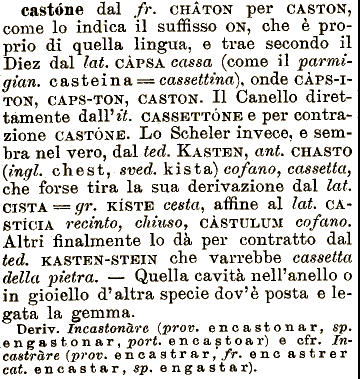 castóne dal fr. CHÂTON per CASTON,
come lo indica il suffisso ON, che è pro-
prio di quella lingua, e trae secondo il
Diez dal lat. CÀPSA cassa (come il parmi-
gian. casteina = cassettina), onde CÀPS-I-
TON, CAPS-TON, CASTON. Il Canello diret-
tamente dall'it. CASSETTÓNE e per contra-
zione CASTÓNE. Lo Scheler invece, e sem-
bra nel vero, dal ted. KASTEN, ant. CHASTO
(ingl. chest, sved. kista) cofano, cassetta,
che forse tira la sua derivazione dal lat.
CISTA = gr. KÍSTE cesta, affine al lat. CA-
STÍCIA recinto, chiuso, CÀSTULUM cofano.
Altri finalmente lo dà per contratto dal
ted. KASTEN-STEIN che varrebbe cassetta
della pietra. — Quella cavità nell'anello o
in gioiello d'altra specie dov'è posta e le-
gata la gemma.
Deriv. Incastonàre (prov. encastonar, sp.
engastonar, port. encastoar) e cfr. In-
castràre (prov. encastrar, fr. encastrer
cat. encastar, sp. engastar).